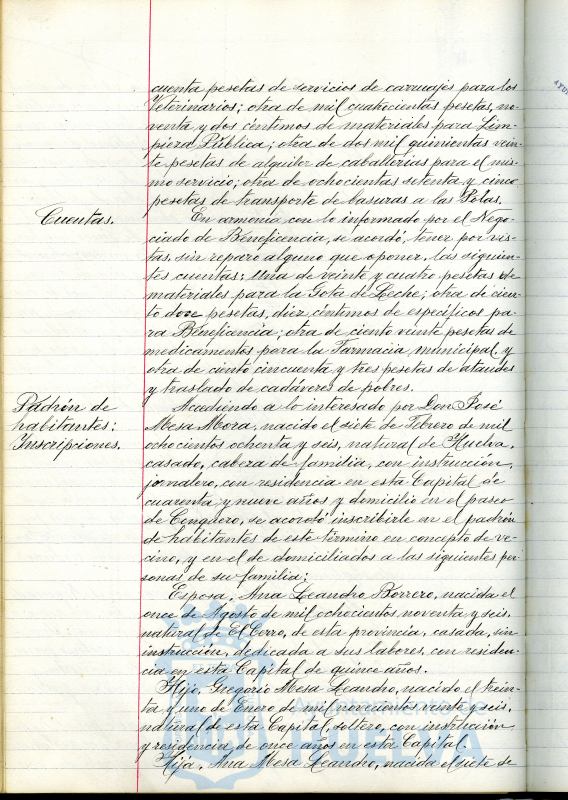 cuenta pesetas de servicios de carruajes para los
Veterinarios; otra de mil cuatrocientas pesetas, no-
venta y dos céntimos de materiales para Lim-
pieza Pública; otra de dos mil quinientas vein-
te pesetas de alquiler de caballerías para el mis-
mo servicio; otra de ochocientas setenta y cinco
pesetas de transporte de basuras a las Potas.
Cuentas.
En armonía con lo informado por el Nego-
ciado de Beneficencia, se acordó, tener por vis-
tas, sin reparo alguno que oponer, las siguien-
tes cuentas: Una de veinte y cuatro pesetas de
materiales para la Gota de Leche; otra de cien-
to doce pesetas, diez céntimos de específicos pa-
ra Beneficencia; otra de ciento veinte pesetas de
medicamentos para la Farmacia municipal y
otra de ciento cincuenta y tres pesetas de ataudes
y traslado de cadáveres de pobres.
Padrón de
habitantes:
Inscripciones.
Accediendo a lo interesado por Don José
Mesa Mora, nacido el siete de Febrero de mil
ochocientos ochenta y seis, natural de Huelva,
casado, cabeza de familia, con instrucción,
jornalero, con residencia en esta Capital de
cuarenta y nueve años y domicilio en el paseo
de Conquero, se acordó inscribirle en el padrón
de habitantes de este término en concepto de ve-
cino, y en el de domiciliados a las siguientes per-
sonas de su familia:
Esposa, Ana Leandro Borrero, nacida el
once de Agosto de mil ochocientos noventa y seis,
natural de El Cerro, de esta provincia, casada, sin
instrucción, dedicada a sus labores, con residen-
cia en esta Capital de quince años.
Hijo, Gregorio Mesa Leandro, nacido el trein-
ta y uno de Enero de mil novecientos veinte y seis,
natural de esta Capital, soltero, con instrucción
y residencia de once años en esta Capital.
Hija, Ana Mesa Leandro, nacida el siete de